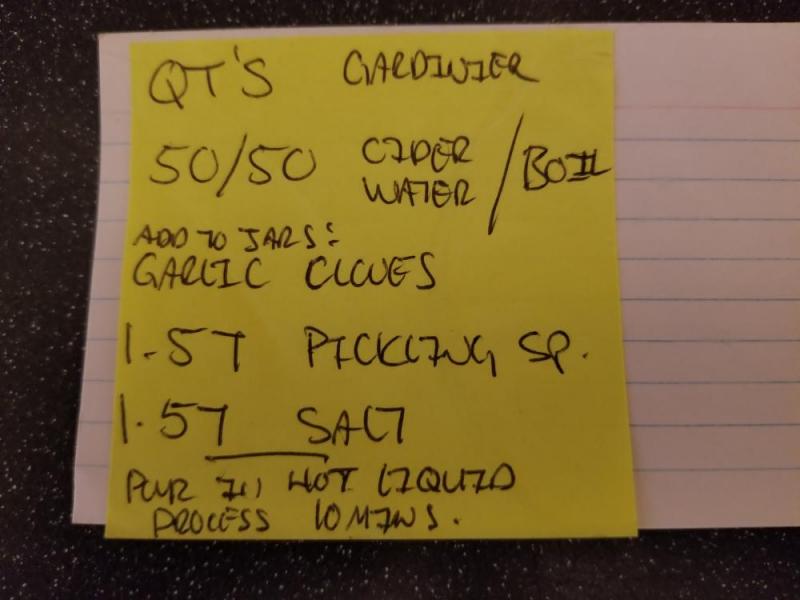 QT'S GARDINIER
50/50 CIDER
WATER / BOIL
ADD TO JARS:
GARLIC CLOVES
1.5T PICKLING SP.
1.5T SALT
POUR IN HOT LIQUID
PROCESS 10 MINS.